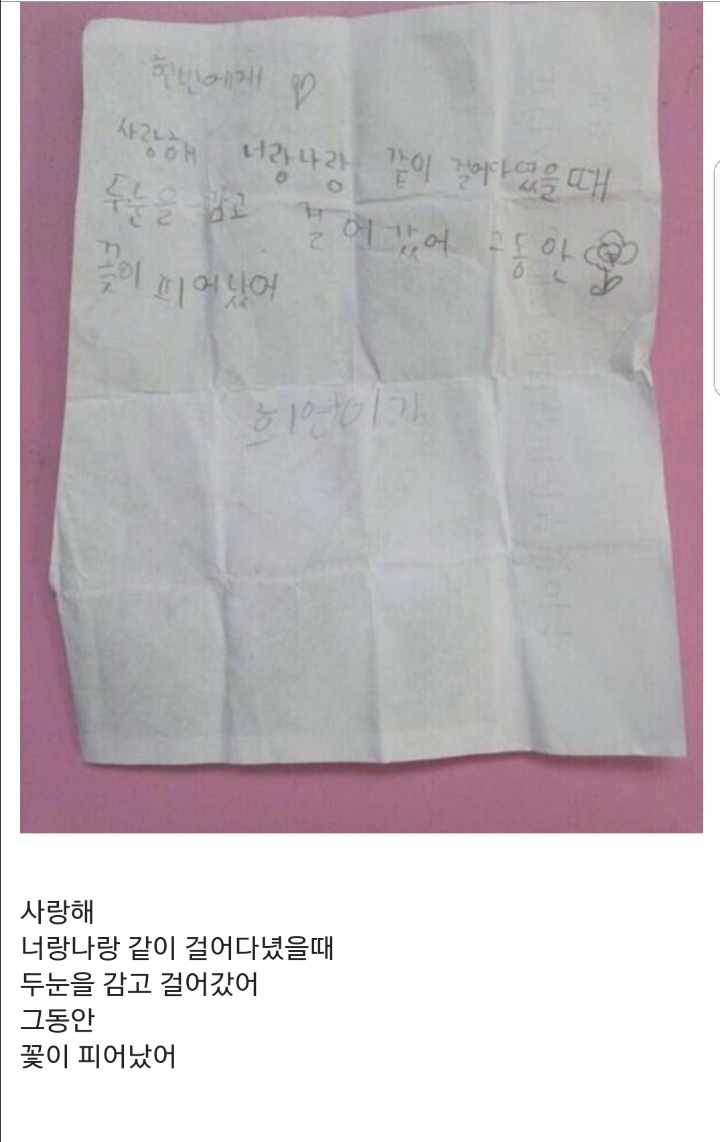 현빈에게 ♡
사랑해 너랑나랑 같이 걸어다녔을때
두눈을 감고 걸어갔어 그동안
꽃이 피어났어
희연이가
사랑해
너랑나랑 같이 걸어다녔을때
두눈을 감고 걸어갔어
그동안
꽃이 피어났어